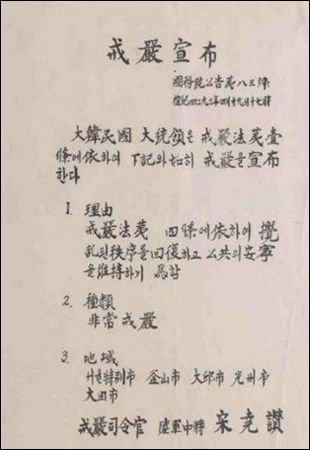 戒嚴宣布
國務院公告第八三號
檀紀四二九三年四月十九日十七時
大韓民國 大統領은 戒嚴法第壹
條에依하여 下記와如히 戒嚴을宣布
한다
1. 理由
戒嚴法第 四條에依하여 攪
乱된秩序를回復하고 公共의安寧
을維持하기 爲함
2. 種類
非常戒嚴
3. 地域
서울特別市 釜山市 大邱市 光州市
大田市
戒嚴司令官 陸軍中將 宋堯讚